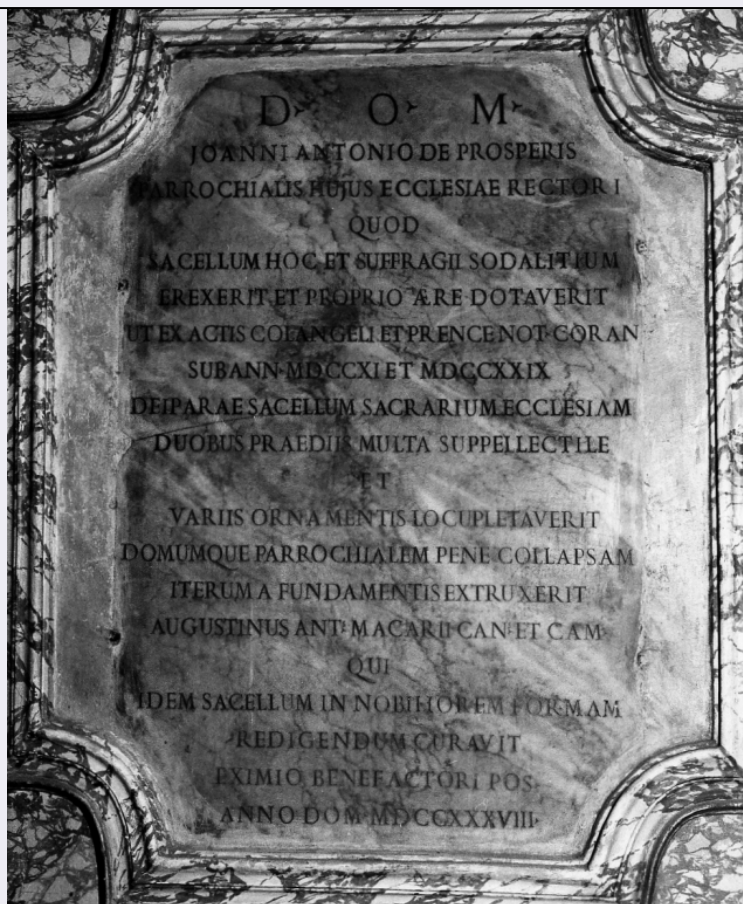 D· O· M·
JOANNI ANTONIO DE PROSPERIS
PARROCHIALIS HUJUS ECCLESIAE RECTORI
QUOD
SACELLUM HOC ET SUFFRAGII SODALITIUM
EREXERIT ET PROPRIO ÆRE DOTAVERIT
UT EX ACTIS COLANGELI ET PRENCE NOT· CORAN
SUB ANN· MDCCXI ET MDCCXXIX
DEIPARAE SACELLUM SACRARIUM ECCLESIAM
DUOBUS PRAEDIIS MULTA SUPPELLECTILE
ET
VARIIS ORNAMENTIS LOCUPLETAVERIT
DOMUMQUE PARROCHIALEM PENE COLLAPSAM
ITERUM A FUNDAMENTIS EXTRUXERIT
AUGUSTINUS ANT· MACARII CAN· ET CAM·
QUI
IDEM SACELLUM IN NOBILIOREM FORMAM
REDIGENDUM CURAVIT
EXIMIO BENEFACTORI POS·
ANNO DOM· MDCCXXXVIII·